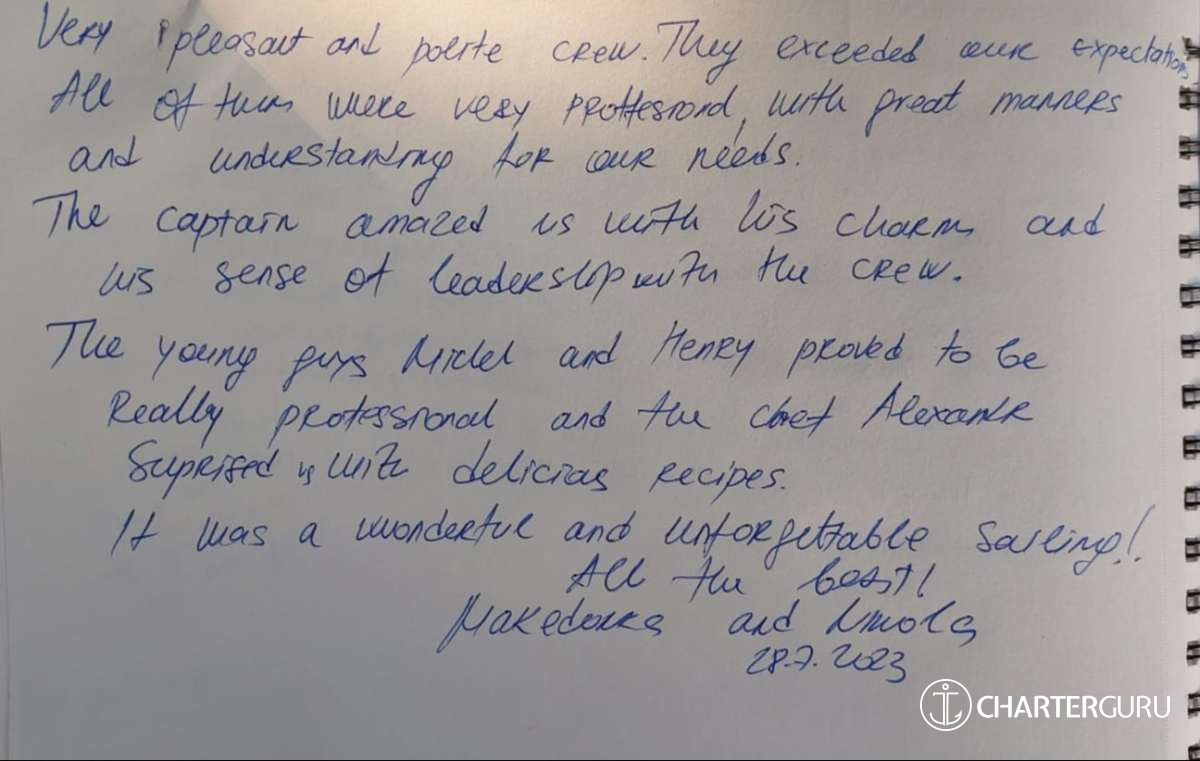 Very pleasant and polite crew. They exceeded our expectations
All of them were very proffesional, with great manners
and understanding for our needs.
The captain amazed us with his charm and
his sense of leadership with the crew.
The young guys and Henry proved to be
Really professional and the chef Alexandr
Suprised us with delicias recipes.
It was a wonderful and unforgettable sailing!
All the best!
Makedonka and
28.7.2023
CHARTERGURU